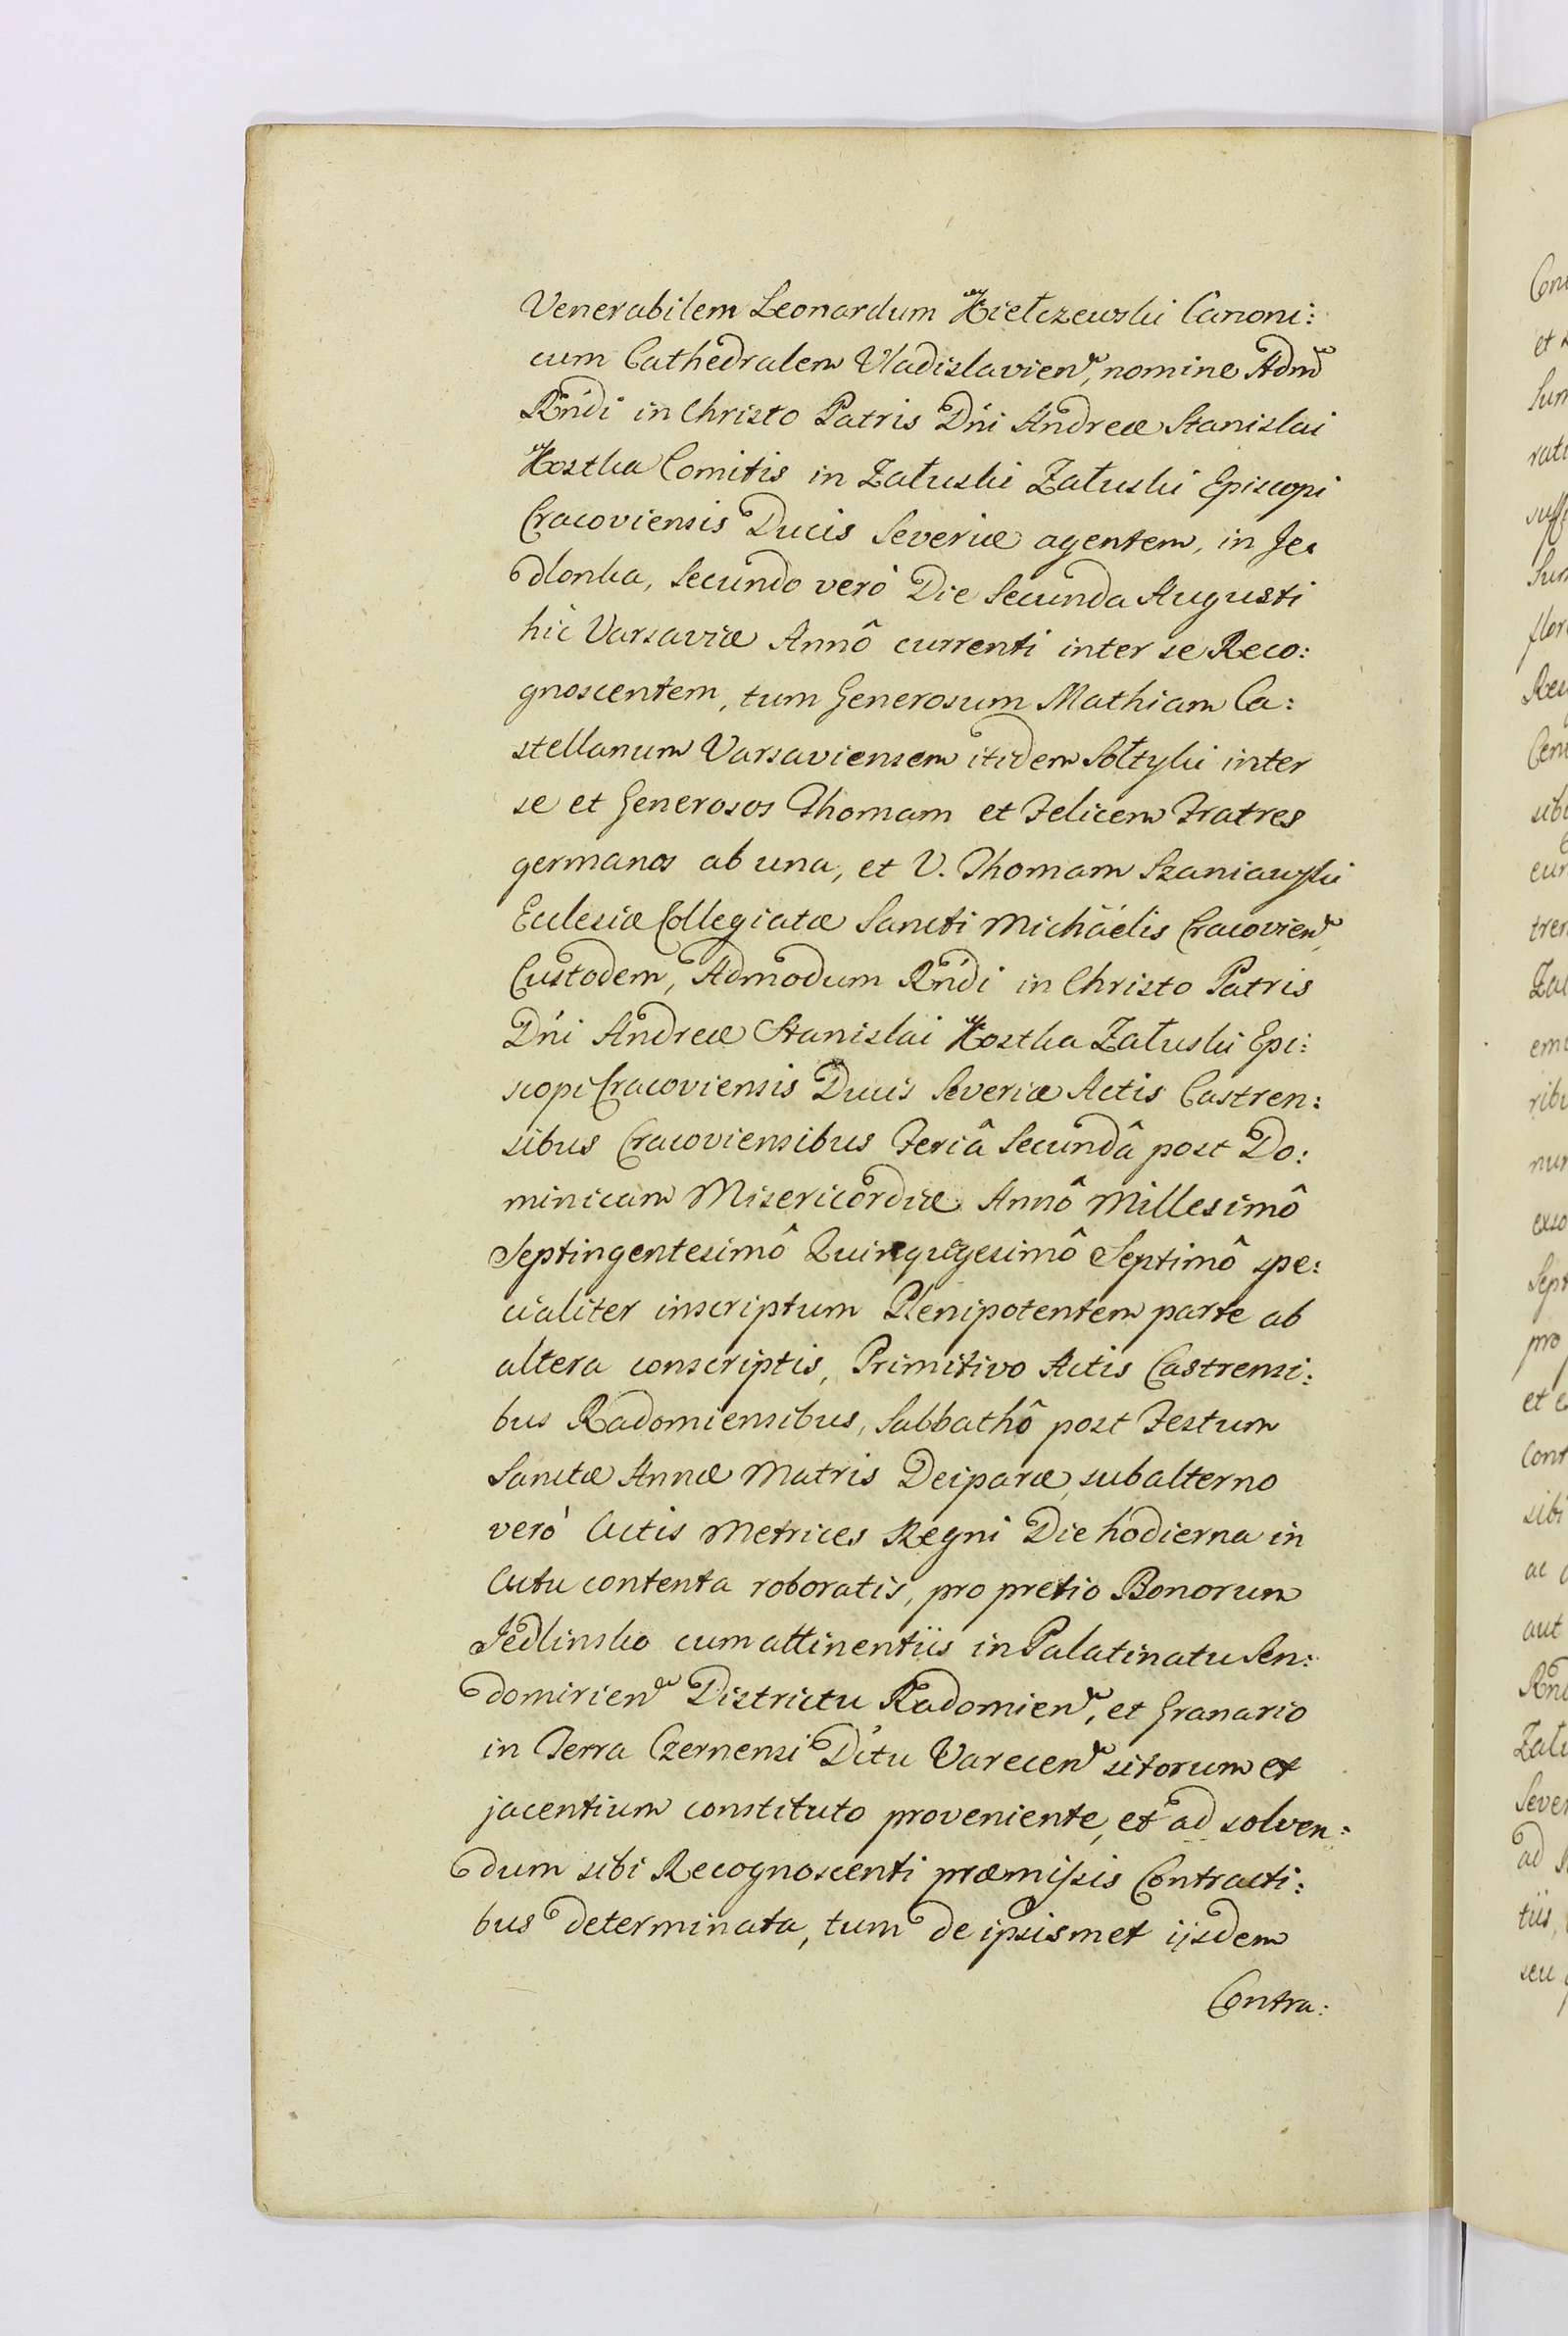 Venerabilem Leonardum Kiełczewski Canoni:
cum Cathedralem Vladislavien, nomine Adm
Rńdi in Christo Patris Dńi Andreæ Stanislai
Kostka Comitis in Załuski Załuski Episcopi
Cracoviensis Ducis Severiæ agentem, in Je:
dlonka, Secundo verò Die Secunda Augusti
hic Varsaviæ Annô currenti inter se Reco:
gnoscentem, tum Generosum Mathiam Ca:
stellanum Varsaviensem itidem Sołtyki inter
se et Generosos Thomam et Felicem Fratres
germanos ab una, et V. Thomam Szaniawski
Eclesiæ Collegiatæ Sancti Michäelis Cracovien,
Custodem, Admodum Rńdi in Christo Patris
Dńi Andreæ Stanislai Kostka Załuski Epi:
scopi Cracoviensis Ducis Severiæ Actis Castren:
sibus Cracoviensibus Feriâ Secundâ post Do:
minicam Misericordiæ Annô Millesimô
Septingentesimô Quinqugesimô Septimô spe:
cialiter inscriptum Plenipotentem parte ab
altera conscriptis, Primitivo Actis Castrensi:
bus Radomiensibus, Sabbathô post Festum
Sanctæ Annæ Matris Deiparæ, subalterno
verò Actis Metrices Regni Die hodierna in
Actu contenta roboratis, pro pretio Bonorum
Jedlinsko cum attinentiis in Palatinatu Sen:
domirien Districtu Radomien, et Granario
in Terra Czernensi Dítu Varecen sitorum et
jacentium constituto proveniente, et ad solven:
dum sibi Recognoscenti præmissis Contracti:
bus determinata, tum de ipsismet ijsdem
Contra: